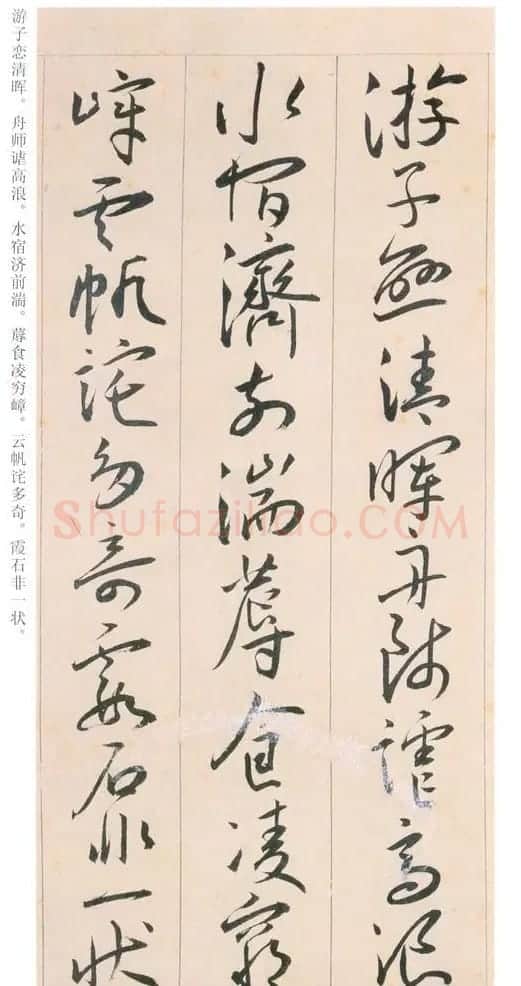 游子恋清晖。舟师谑高浪。水宿济前湍。蓐食凌穷嶂。云帆诧多奇。霞石非一状。
游子戀清暉舟師謔高浪
水宿濟前湍蓐食凌窮
嶂雲帆詫多奇霞石非一狀
Shufazidiao.COM